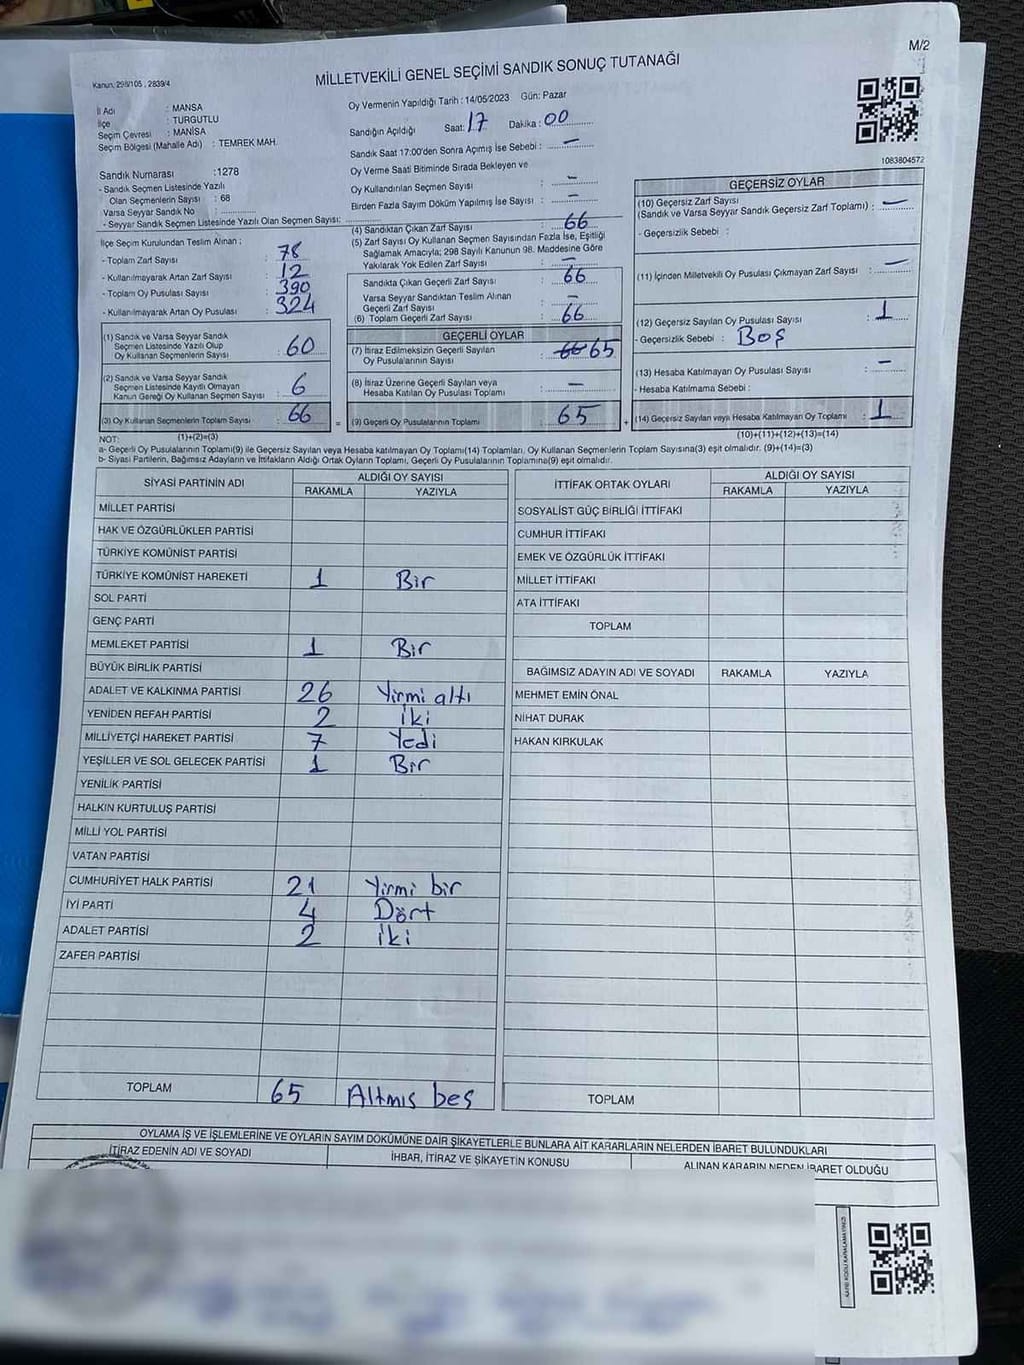 M/2
Kanun, 298/105 , 2839/4
MİLLETVEKİLİ GENEL SEÇİMİ SANDIK SONUÇ TUTANAĞI
İl Adı : MANİSA
İlçe : TURGUTLU
Seçim Çevresi : MANİSA
Seçim Bölgesi (Mahalle Adı) : TEMREK MAH.
Sandık Numarası :1278
- Sandık Seçmen Listesinde Yazılı
Olan Seçmenlerin Sayısı : 68
Varsa Seyyar Sandık No :
- Seyyar Sandık Seçmen Listesinde Yazılı Olan Seçmen Sayısı:
Oy Vermenin Yapıldığı Tarih : 14/05/2023 Gün: Pazar
Sandığın Açıldığı Saat: 17 Dakika : 00
Sandık Saat 17:00'den Sonra Açılmış İse Sebebi : —
Oy Verme Saati Bitiminde Sırada Bekleyen ve
Oy Kullandırılan Seçmen Sayısı : —
Birden Fazla Sayım Döküm Yapılmış İse Sayısı : —
1083804572
İlçe Seçim Kurulundan Teslim Alınan ;
- Toplam Zarf Sayısı : 78
- Kullanılmayarak Artan Zarf Sayısı : 12
- Toplam Oy Pusulası Sayısı : 390
- Kullanılmayarak Artan Oy Pusulası : 324
(1) Sandık ve Varsa Seyyar Sandık
Seçmen Listesinde Yazılı Olup
Oy Kullanan Seçmenlerin Sayısı : 60
(2) Sandık ve Varsa Seyyar Sandık
Seçmen Listesinde Kayıtlı Olmayan
Kanun Gereği Oy Kullanan Seçmen Sayısı : 6
(3) Oy Kullanan Seçmenlerin Toplam Sayısı : 66
(1)+(2)=(3)
(4) Sandıktan Çıkan Zarf Sayısı : 66
(5) Zarf Sayısı Oy Kullanan Seçmen Sayısından Fazla İse, Eşitliği
Sağlamak Amacıyla; 298 Sayılı Kanunun 98. Maddesine Göre
Yakılarak Yok Edilen Zarf Sayısı : —
Sandıkta Çıkan Geçerli Zarf Sayısı : 66
Varsa Seyyar Sandıktan Teslim Alınan
Geçerli Zarf Sayısı : —
(6) Toplam Geçerli Zarf Sayısı : 66
GEÇERLİ OYLAR
(7) İtiraz Edilmeksizin Geçerli Sayılan
Oy Pusulalarının Sayısı : 66 65
(8) İtiraz Üzerine Geçerli Sayılan veya
Hesaba Katılan Oy Pusulası Toplamı : —
= (9) Geçerli Oy Pusulalarının Toplamı : 65 +
GEÇERSİZ OYLAR
(10) Geçersiz Zarf Sayısı
(Sandık ve Varsa Seyyar Sandık Geçersiz Zarf Toplamı) : —
- Geçersizlik Sebebi :
(11) İçinden Milletvekili Oy Pusulası Çıkmayan Zarf Sayısı : —
(12) Geçersiz Sayılan Oy Pusulası Sayısı : 1
- Geçersizlik Sebebi : Boş
(13) Hesaba Katılmayan Oy Pusulası Sayısı : —
- Hesaba Katılmama Sebebi :
(14) Geçersiz Sayılan veya Hesaba Katılmayan Oy Toplamı : 1
(10)+(11)+(12)+(13)=(14)
NOT:
a- Geçerli Oy Pusulalarının Toplamı(9) ile Geçersiz Sayılan veya Hesaba katılmayan Oy Toplamı(14) Toplamları, Oy Kullanan Seçmenlerin Toplam Sayısına(3) eşit olmalıdır. (9)+(14)=(3)
b- Siyasi Partilerin, Bağımsız Adayların ve İttifakların Aldığı Ortak Oyların Toplamı, Geçerli Oy Pusulalarının Toplamına(9) eşit olmalıdır.
SİYASİ PARTİNİN ADI ALDIĞI OY SAYISI
RAKAMLA YAZIYLA
MİLLET PARTİSİ
HAK VE ÖZGÜRLÜKLER PARTİSİ
TÜRKİYE KOMÜNİST PARTİSİ
TÜRKİYE KOMÜNİST HAREKETİ 1 Bir
SOL PARTİ
GENÇ PARTİ
MEMLEKET PARTİSİ 1 Bir
BÜYÜK BİRLİK PARTİSİ
ADALET VE KALKINMA PARTİSİ 26 Yirmi altı
YENİDEN REFAH PARTİSİ 2 İki
MİLLİYETÇİ HAREKET PARTİSİ 7 Yedi
YEŞİLLER VE SOL GELECEK PARTİSİ 1 Bir
YENİLİK PARTİSİ
HALKIN KURTULUŞ PARTİSİ
MİLLİ YOL PARTİSİ
VATAN PARTİSİ
CUMHURİYET HALK PARTİSİ 21 Yirmi bir
İYİ PARTİ 4 Dört
ADALET PARTİSİ 2 İki
ZAFER PARTİSİ
TOPLAM 65 Altmış beş
İTTİFAK ORTAK OYLARI ALDIĞI OY SAYISI
RAKAMLA YAZIYLA
SOSYALİST GÜÇ BİRLİĞİ İTTİFAKI
CUMHUR İTTİFAKI
EMEK VE ÖZGÜRLÜK İTTİFAKI
MİLLET İTTİFAKI
ATA İTTİFAKI
TOPLAM
BAĞIMSIZ ADAYIN ADI VE SOYADI RAKAMLA YAZIYLA
MEHMET EMİN ÖNAL
NİHAT DURAK
HAKAN KIRKULAK
TOPLAM
OYLAMA İŞ VE İŞLEMLERİNE VE OYLARIN SAYIM DÖKÜMÜNE DAİR ŞİKAYETLERLE BUNLARA AİT KARARLARIN NELERDEN İBARET BULUNDUKLARI
İTİRAZ EDENİN ADI VE SOYADI İHBAR, İTİRAZ VE ŞİKAYETİN KONUSU ALINAN KARARIN NEDEN İBARET OLDUĞU